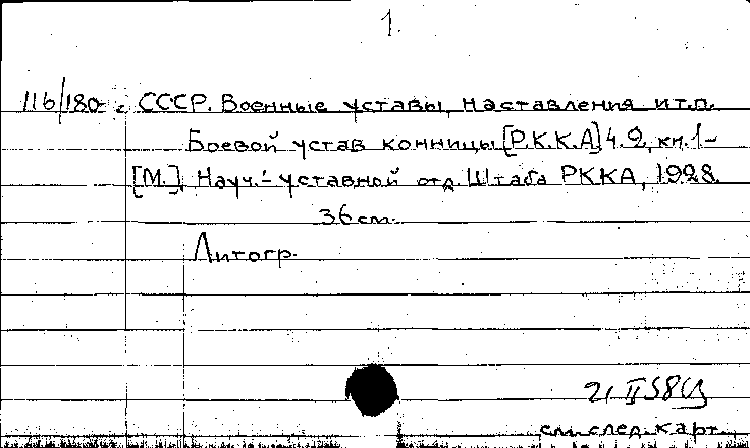 1.
116/180 СССР. Военные уставы, наставления и т.п.
Боевой устав конницы [Р.К.К.А] ч.2, кн.1-
[М.], Науч.-уставной отд. Штаба РККА, 1928.
36 см.
Литогр.
21 II 58
см. след. карт.